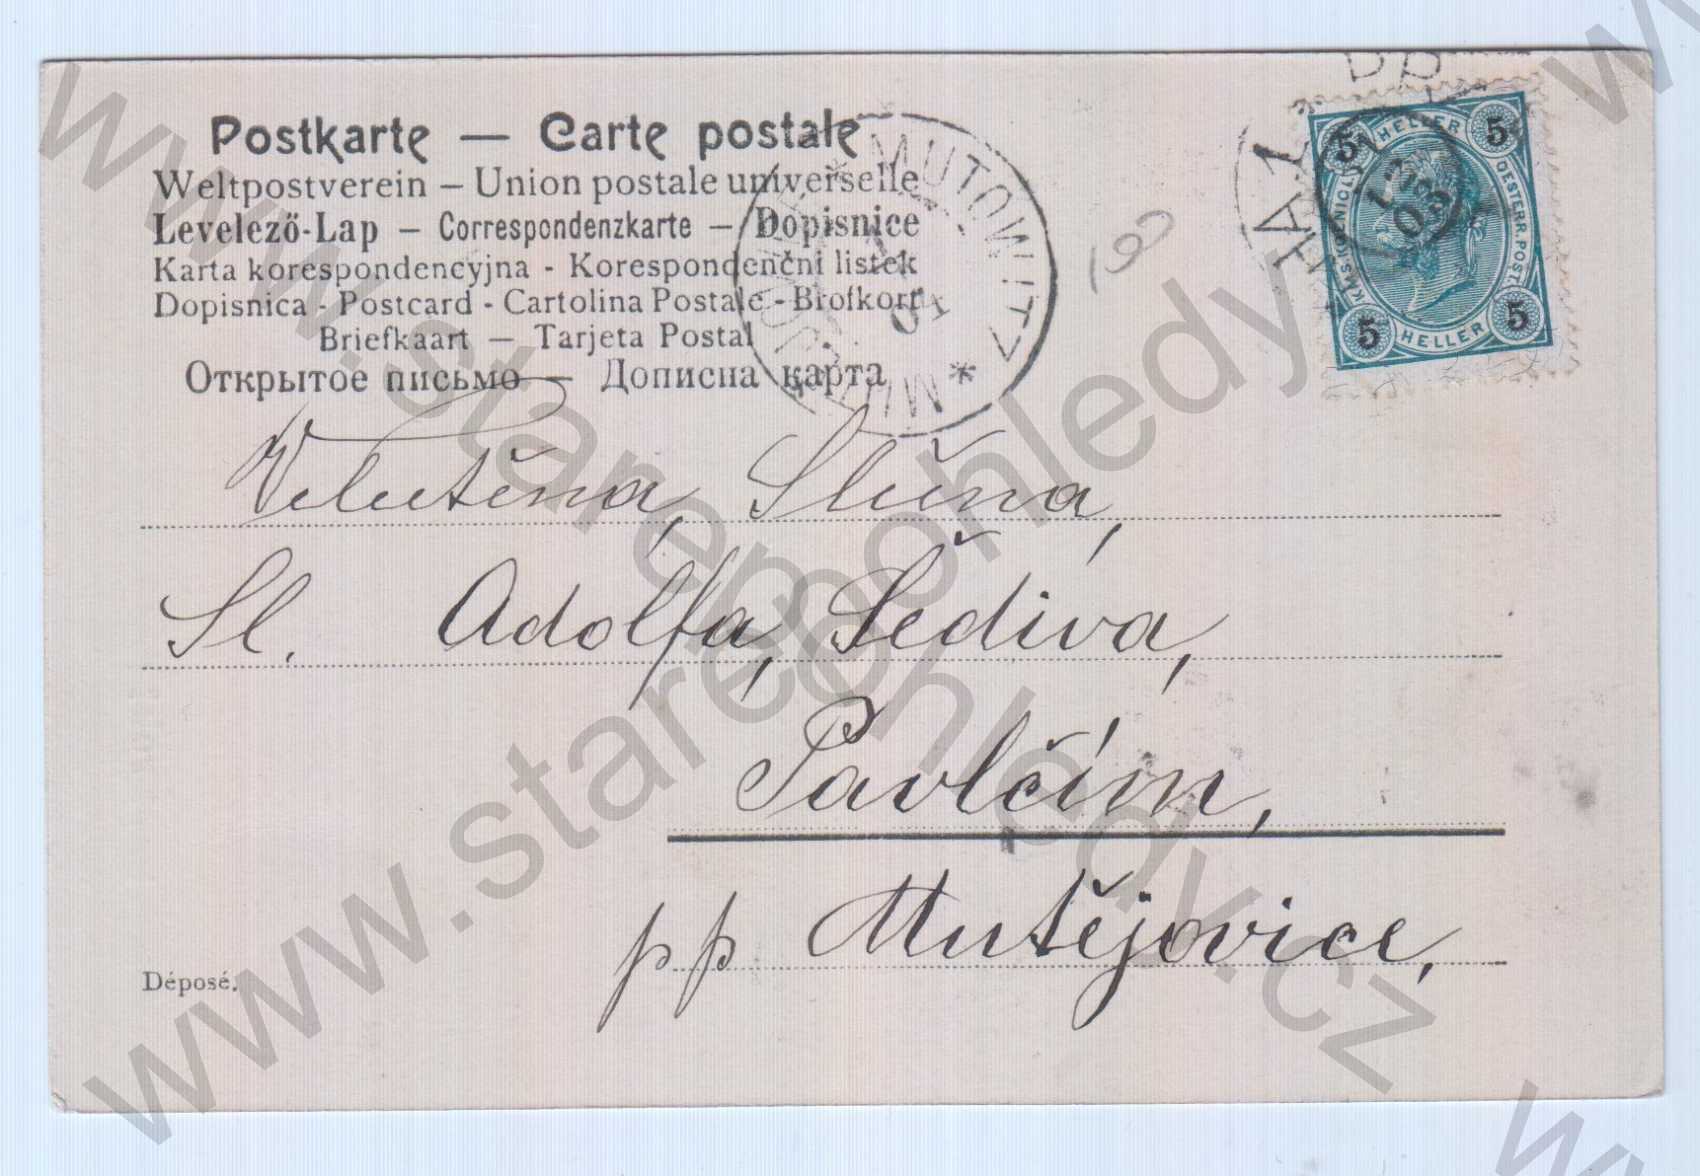 Postkarte — Carte postale
Weltpostverein – Union postale universelle
Levelező-Lap – Correspondenzkarte – Dopisnice
Karta korespondencyjna - Korespondenční listek
Dopisnica - Postcard - Cartolina Postale - Brofkort
Briefkaart — Tarjeta Postal
Открытое письмо — Дописна карта
MUTOWITZ
5 HELLER 5
KAIS. KÖNIGL. OESTERR. POST
5 HELLER 5
Velectěná, Slečna,
Sl. Adolfa, Šedivá,
Pavlčín,
pp Mutějovice,
Déposé.
www.starepohledy.cz
www.starepohledy.cz